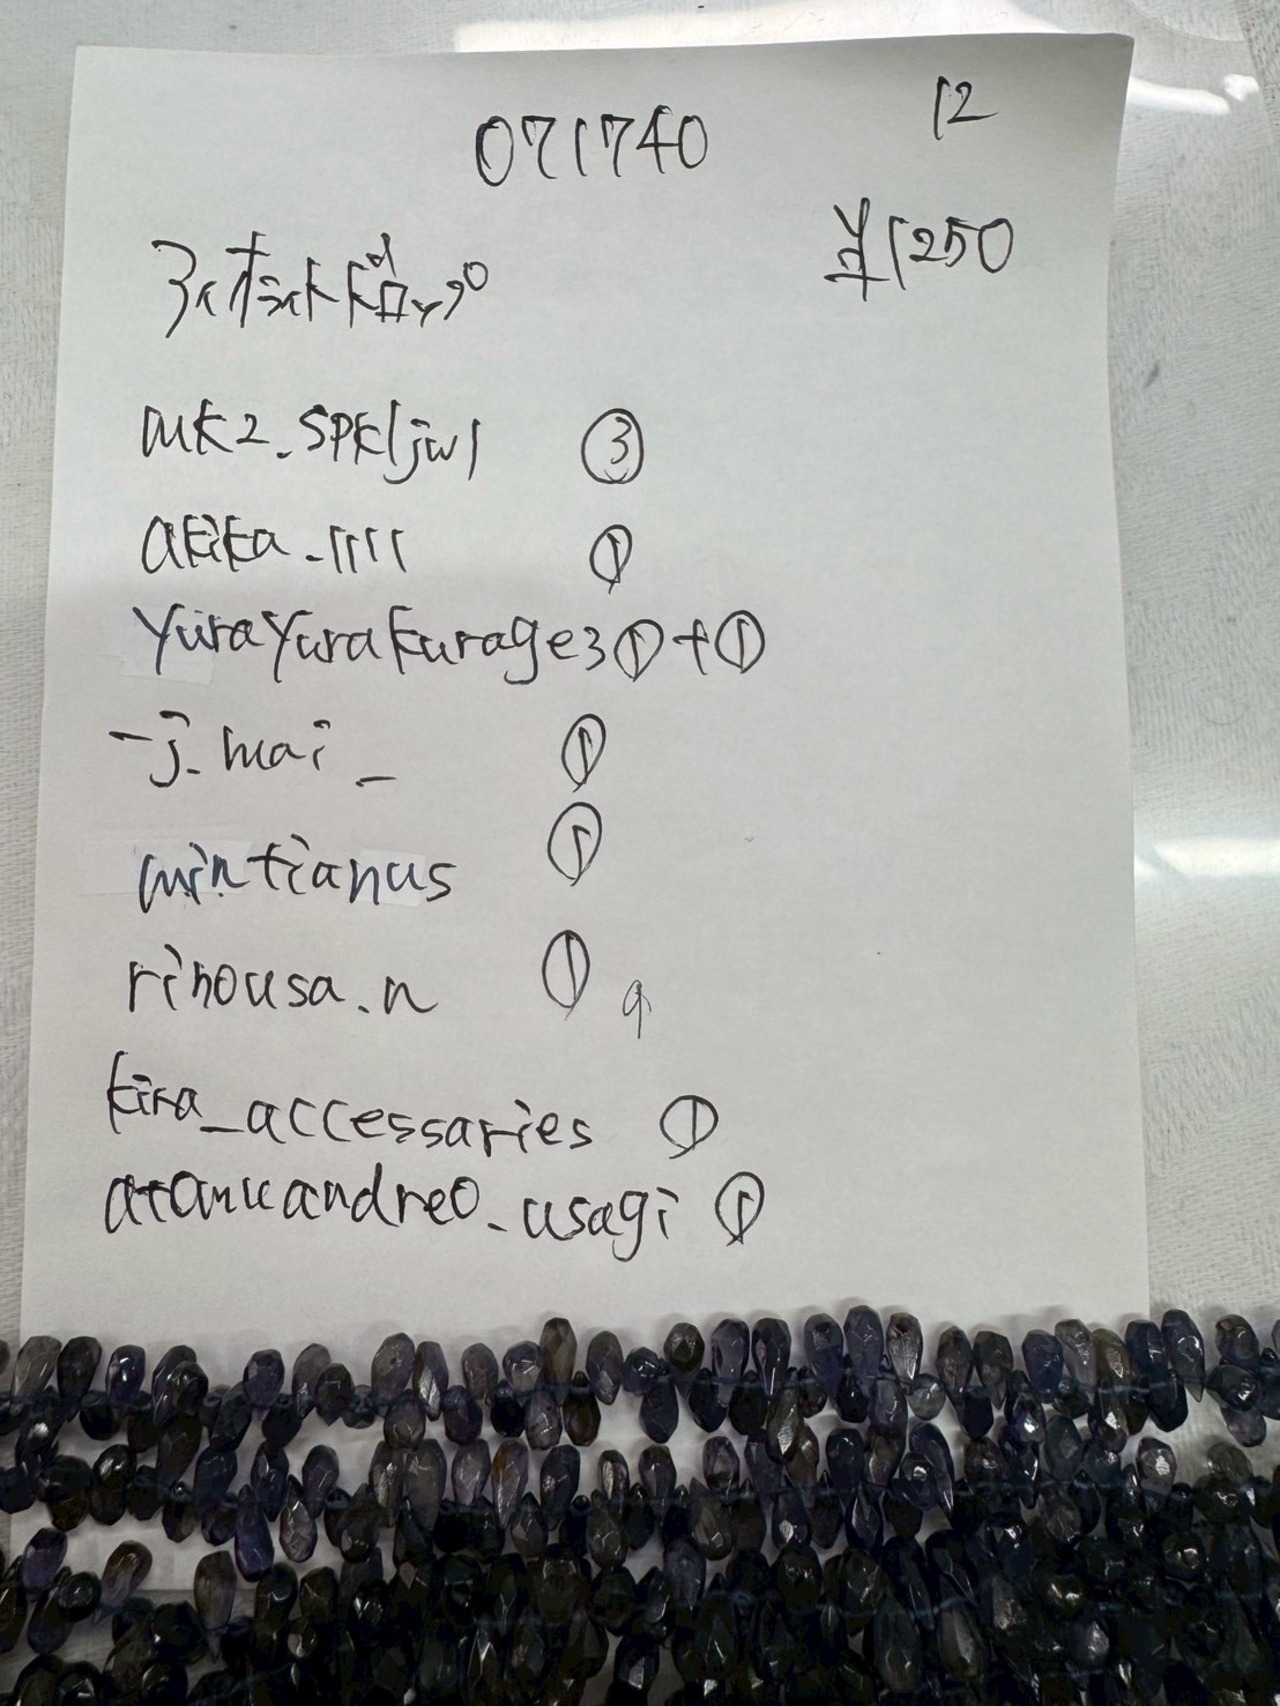 071740
12
¥1250
アイオライトドロップ
mk2_spkljwl ③
akika_1111 ①
yurayurakurage3 ①+①
_j.mai_ ①
mintianus ①
rinousa.n ① 9
kira_accessaries ①
atamicandre0_usagi ①